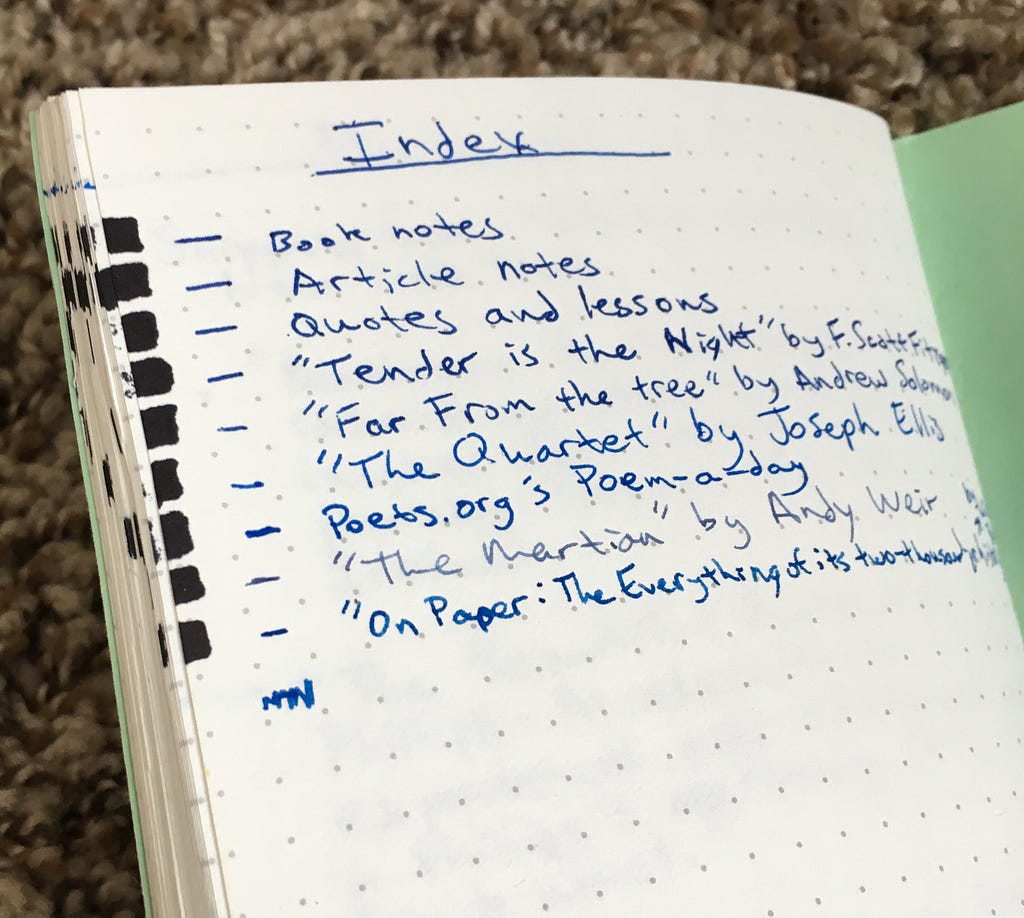 Index
— Book notes
— Article notes
— Quotes and lessons
— "Tender is the Night" by F. Scott
— "Far From the tree" by Andrew Solomon
— "The Quartet" by Joseph Ellis
— Poets.org's Poem-a-day
— "The Martian" by Andy Weir
— "On Paper: The Everything of its two-thousand
by